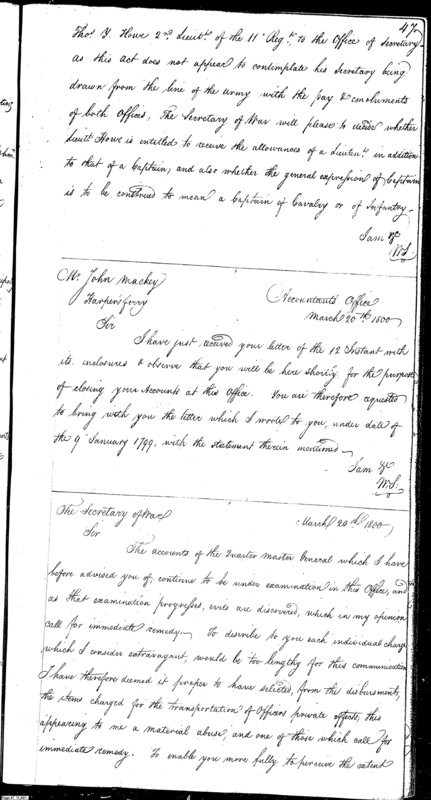 47.
Thos. Y. Howe 2nd Lieut. of the 11th Regt. to the Office of Secretary
as this act does not appear to contemplate his Secretary being
drawn from the line of the army with the pay & emoluments
of both Offices, The Secretary of War will please to whether
Lieut. Howe is entitled to receive the allowances of a Lieutent. in addition
to that of a Captain, and also whether the general expression of Captain
is to be construed to mean a Captain of Cavalry or of Infantry.
I am &c
W.S.
Mr. John Mackey
Harpers ferry
Accountants Office
March 20th 1800
Sir
I have just received your letter of the 12 Instant with
its enclosures & observe that you will be here shortly for the purpose
of closing your Accounts at this Office. You are therefore requested
to bring with you the letter which I wrote to you, under date of
the 9th January 1799, with the statement therein mentioned
I am &c
W.S.
The Secretary of War
March 20th 1800
Sir
The accounts of the Quarter Master General which I have
before advised you of continue to be under examination in this Office, and
as that examination progresses, evils are discovered, which in my opinion
call for immediate remedy. To describe to you each individual charge
which I consider extravagant, would be too lengthy for this communication
I have therefore deemed it proper to have selected, from the disbursments,
the items charged for the transportation of Officers private effects, this
appearing to me a material abuse, and one of those which call for
immediate remedy. To enable you more fully to perceive the extent